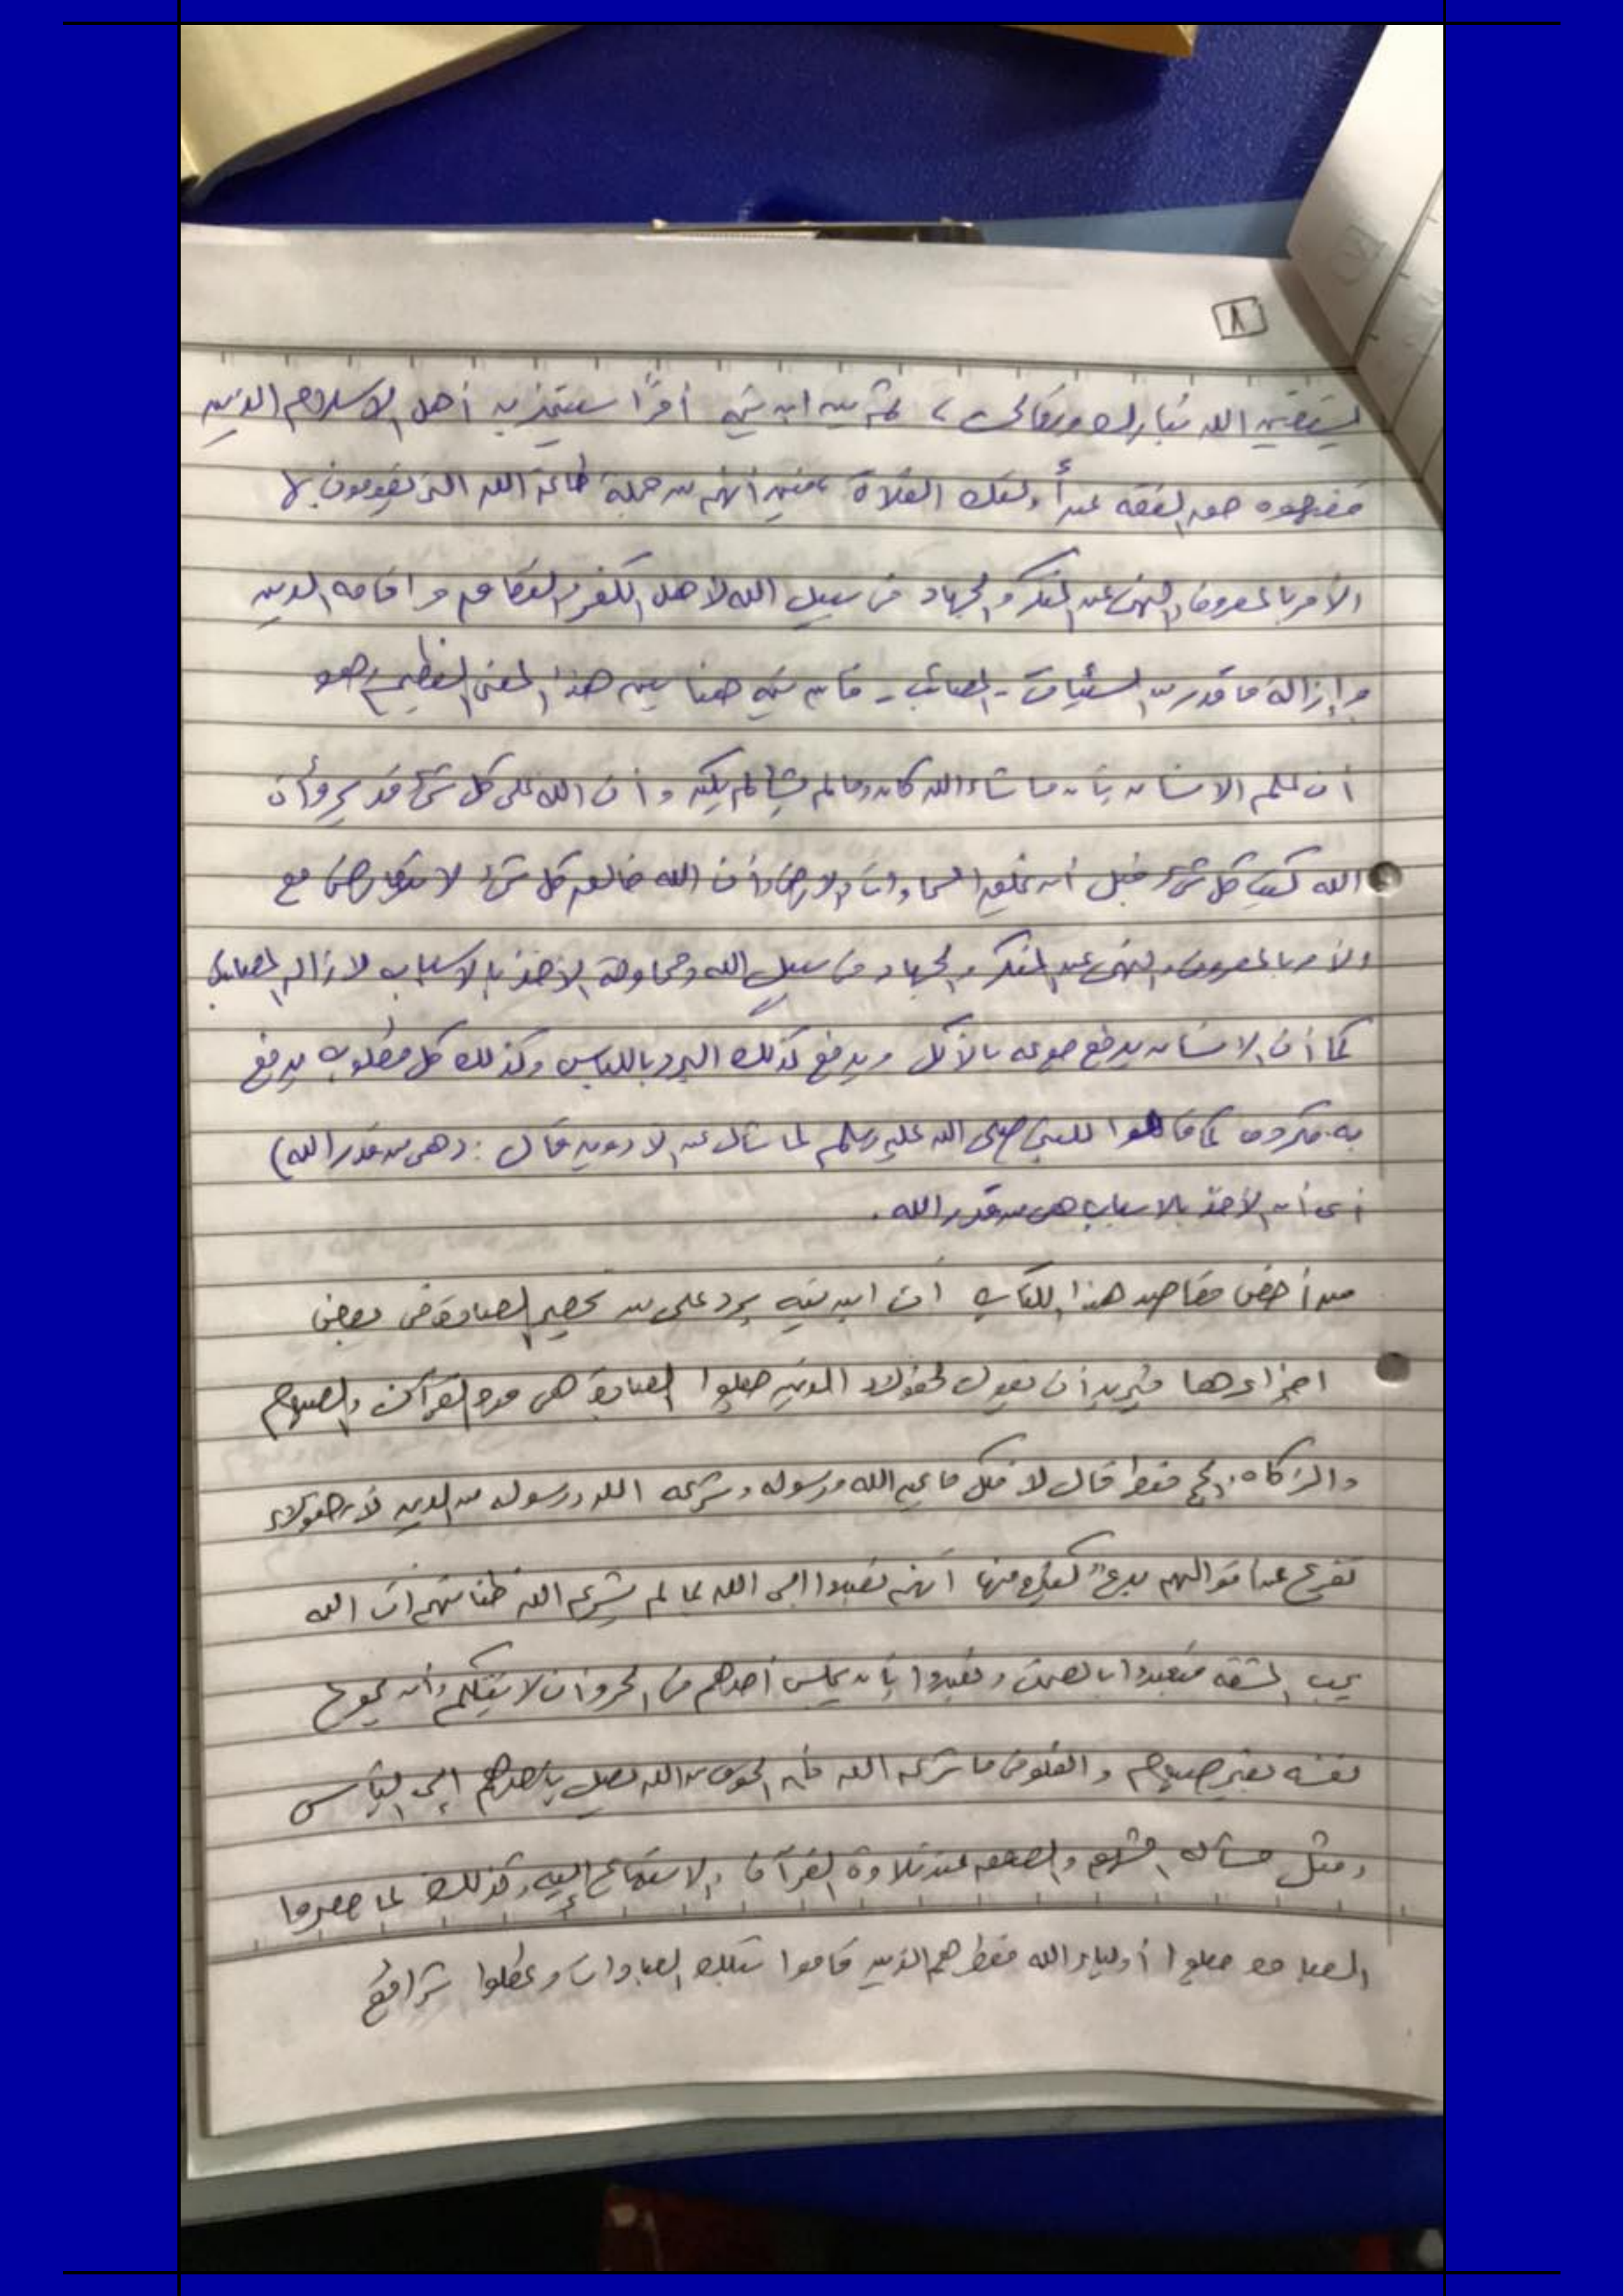 ٨
الله تبارك وتعالى، ثم بين ابن تيمية أمرًا سيتميز به أهل الإسلام الذين
الفقه عن أولئك الغلاة أنهم من جملة طاعة الله التي يقومون بها
الأمر بالمعروف والنهي عن المنكر والجهاد في سبيل الله لأهل الكفر و وإقامة الدين
وإزالة ما قدر من السيئات - المصائب - هنا يبين هذا المعنى العظيم وهو
أن علم الإنسان بأن ما شاء الله كان وما لم يشأ لم يكن وأن الله على كل شيء قدير وأن
الله كتب كل شيء قبل أن يخلق السماوات والأرض وأن الله خالق كل شيء لا يتعارض مع
الأمر بالمعروف والنهي عن المنكر والجهاد في سبيل الله ومحاولة الأخذ بالأسباب لإزالة المصائب
كما أن الإنسان يدفع جوعه بالأكل ويدفع كذلك البرد باللباس وكذلك كل مطلوب يدفع
به مكروه كما قالوا للنبي صلى الله عليه وسلم لما سأل عن الأدوية قال: (هي من قدر الله)
أي أن الأخذ بالأسباب هي من قدر الله.
من أخص مقاصد هذا الكتاب أن ابن تيمية يرد على من يحصر العبادة في بعض
أجزاءها فيريد أن يقول لهؤلاء الذين جعلوا العبادة هي القرآن والصيام
والزكاة والحج فقط قال لا فكل ما الله ورسوله وشرعه الله ورسوله من الدين لأن هؤلاء
تفرع عن أقوالهم بدع كثيرة منها أنهم تعبدوا إلى الله بما لم يشرعه الله ظنا منهم أن الله
يحب المشقة فتعبدوا بالصمت وتعبدوا بأن يجلس أحدهم في الحر وأن لا يتكلم وأن يجوع
نفسه بغير صيام والغلو في ما شرعه الله فإن الخوف من الله يصل بأحدهم إلى اليأس
ومثل مسألة والصعق عند تلاوة القرآن والاستماع إليه وكذلك لما حصروا
العبادة جعلوا أولياء الله فقط هم الذين قاموا بتلك العبادات وعطلوا شرائع